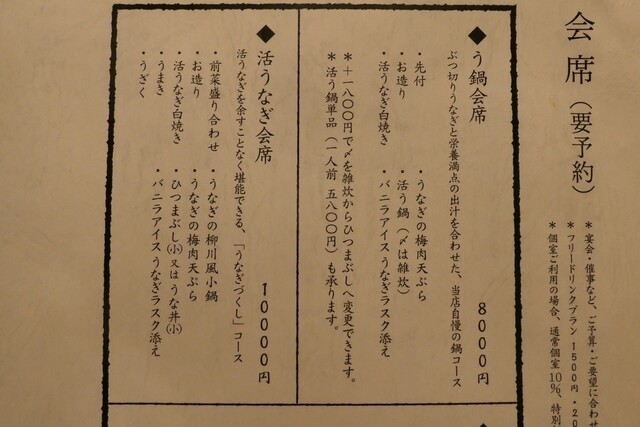 会席（要予約）
＊宴会・催事など、ご予算・ご要望に合わせ
＊フリードリンクプラン 1500円・20
＊個室ご利用の場合、通常個室10%、特別
◆う鍋会席
8000円
ぶつ切りうなぎと栄養満点の出汁を合わせた、当店自慢の鍋コース
・先付
・お造り
・活うなぎ白焼き
・うなぎの梅肉天ぷら
・活う鍋（〆は雑炊）
・バニラアイスうなぎラスク添え
＊＋一八〇〇円で〆を雑炊からひつまぶしへ変更できます。
＊活う鍋単品（一人前 五八〇〇円）も承ります。
◆活うなぎ会席
10000円
活うなぎを余すことなく堪能できる、「うなぎづくし」コース
・前菜盛り合わせ
・お造り
・活うなぎ白焼き
・うまき
・うざく
・うなぎの柳川風小鍋
・うなぎの梅肉天ぷら
・ひつまぶし(小)又はうな丼(小)
・バニラアイスうなぎラスク添え